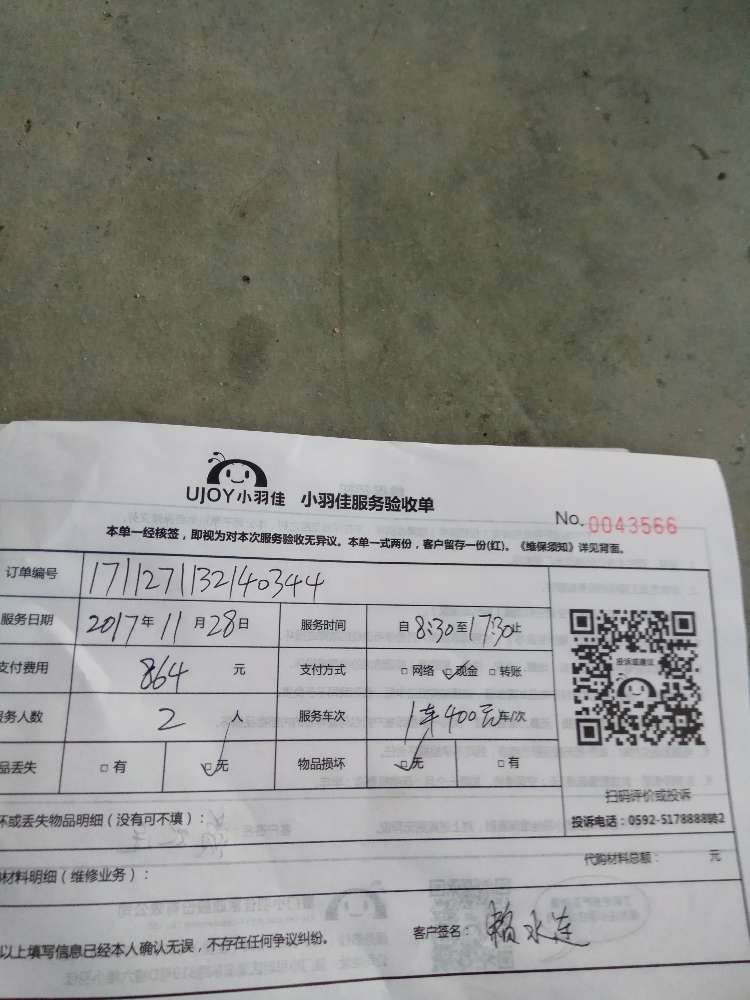 UJOY小羽佳 小羽佳服务验收单
No. 0043566
本单一经核签，即视为对本次服务验收无异议。本单一式两份，客户留存一份(红)。《维保须知》详见背面。
订单编号 171127113214034​4
服务日期 2017年11月28日 服务时间 自8:30至17:30止
支付费用 864 元 支付方式 □网络 ☑现金 □转账
务人数 2 人 服务车次 1车400元车/次
品丢失 □有 ☑无 物品损坏 ☑无 □有
投诉或建议
扫码评价或投诉
投诉电话：0592-5178888转2
坏或丢失物品明细（没有可不填）：
代购材料总额： 元
材料明细（维修业务）：
以上填写信息已经本人确认无误，不存在任何争议纠纷。 客户签名：赖水连